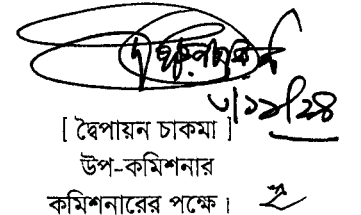 ৮/১২/২৪
[ দ্বৈপায়ন চাকমা ]
উপ-কমিশনার
কমিশনারের পক্ষে।